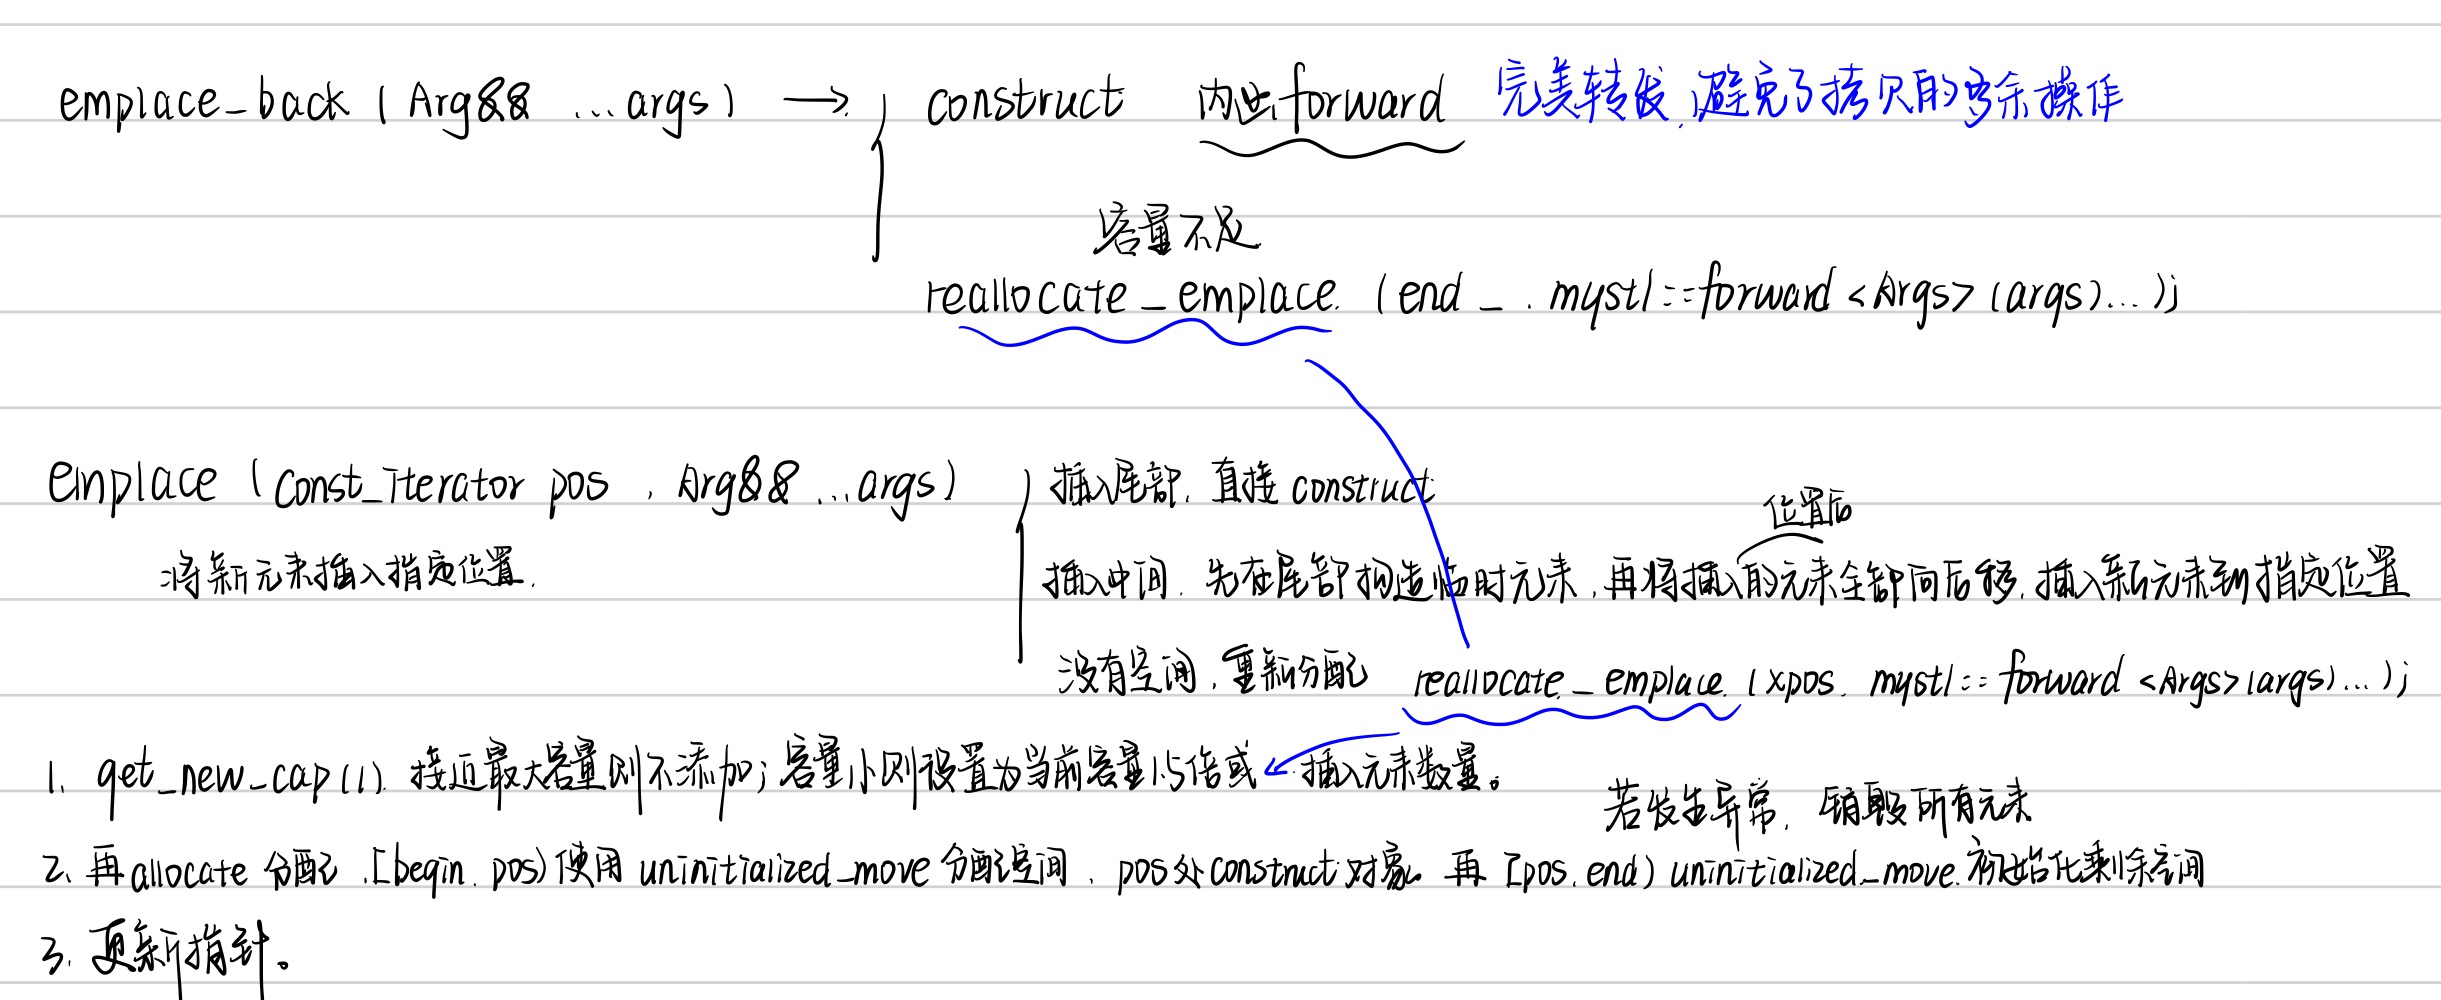 emplace_back ( Arg&& ...args ) → construct 内部forward 完美转发,避免了拷贝的多余操作
容量不足
reallocate_emplace (end_ , mystl::forward<Args>(args)...);
emplace (const_iterator pos , Arg&& ...args) 插入尾部,直接 construct
位置后
将新元素插入指定位置. 插入中间,先在尾部构造临时元素,再将插入的元素全部向后移,插入新元素到指定位置
没有空间,重新分配 reallocate_emplace (xpos, mystl::forward<Args>(args)...);
1. get_new_cap(1). 接近最大容量则不添加;容量小则设置为当前容量1.5倍或 插入元素数量。
若发生异常,销毁所有元素
2. 再allocate 分配,[begin, pos)使用 uninitialized_move 分配空间, pos处construct对象. 再 [pos, end) uninitialized_move.初始化剩余空间
3. 更新指针。